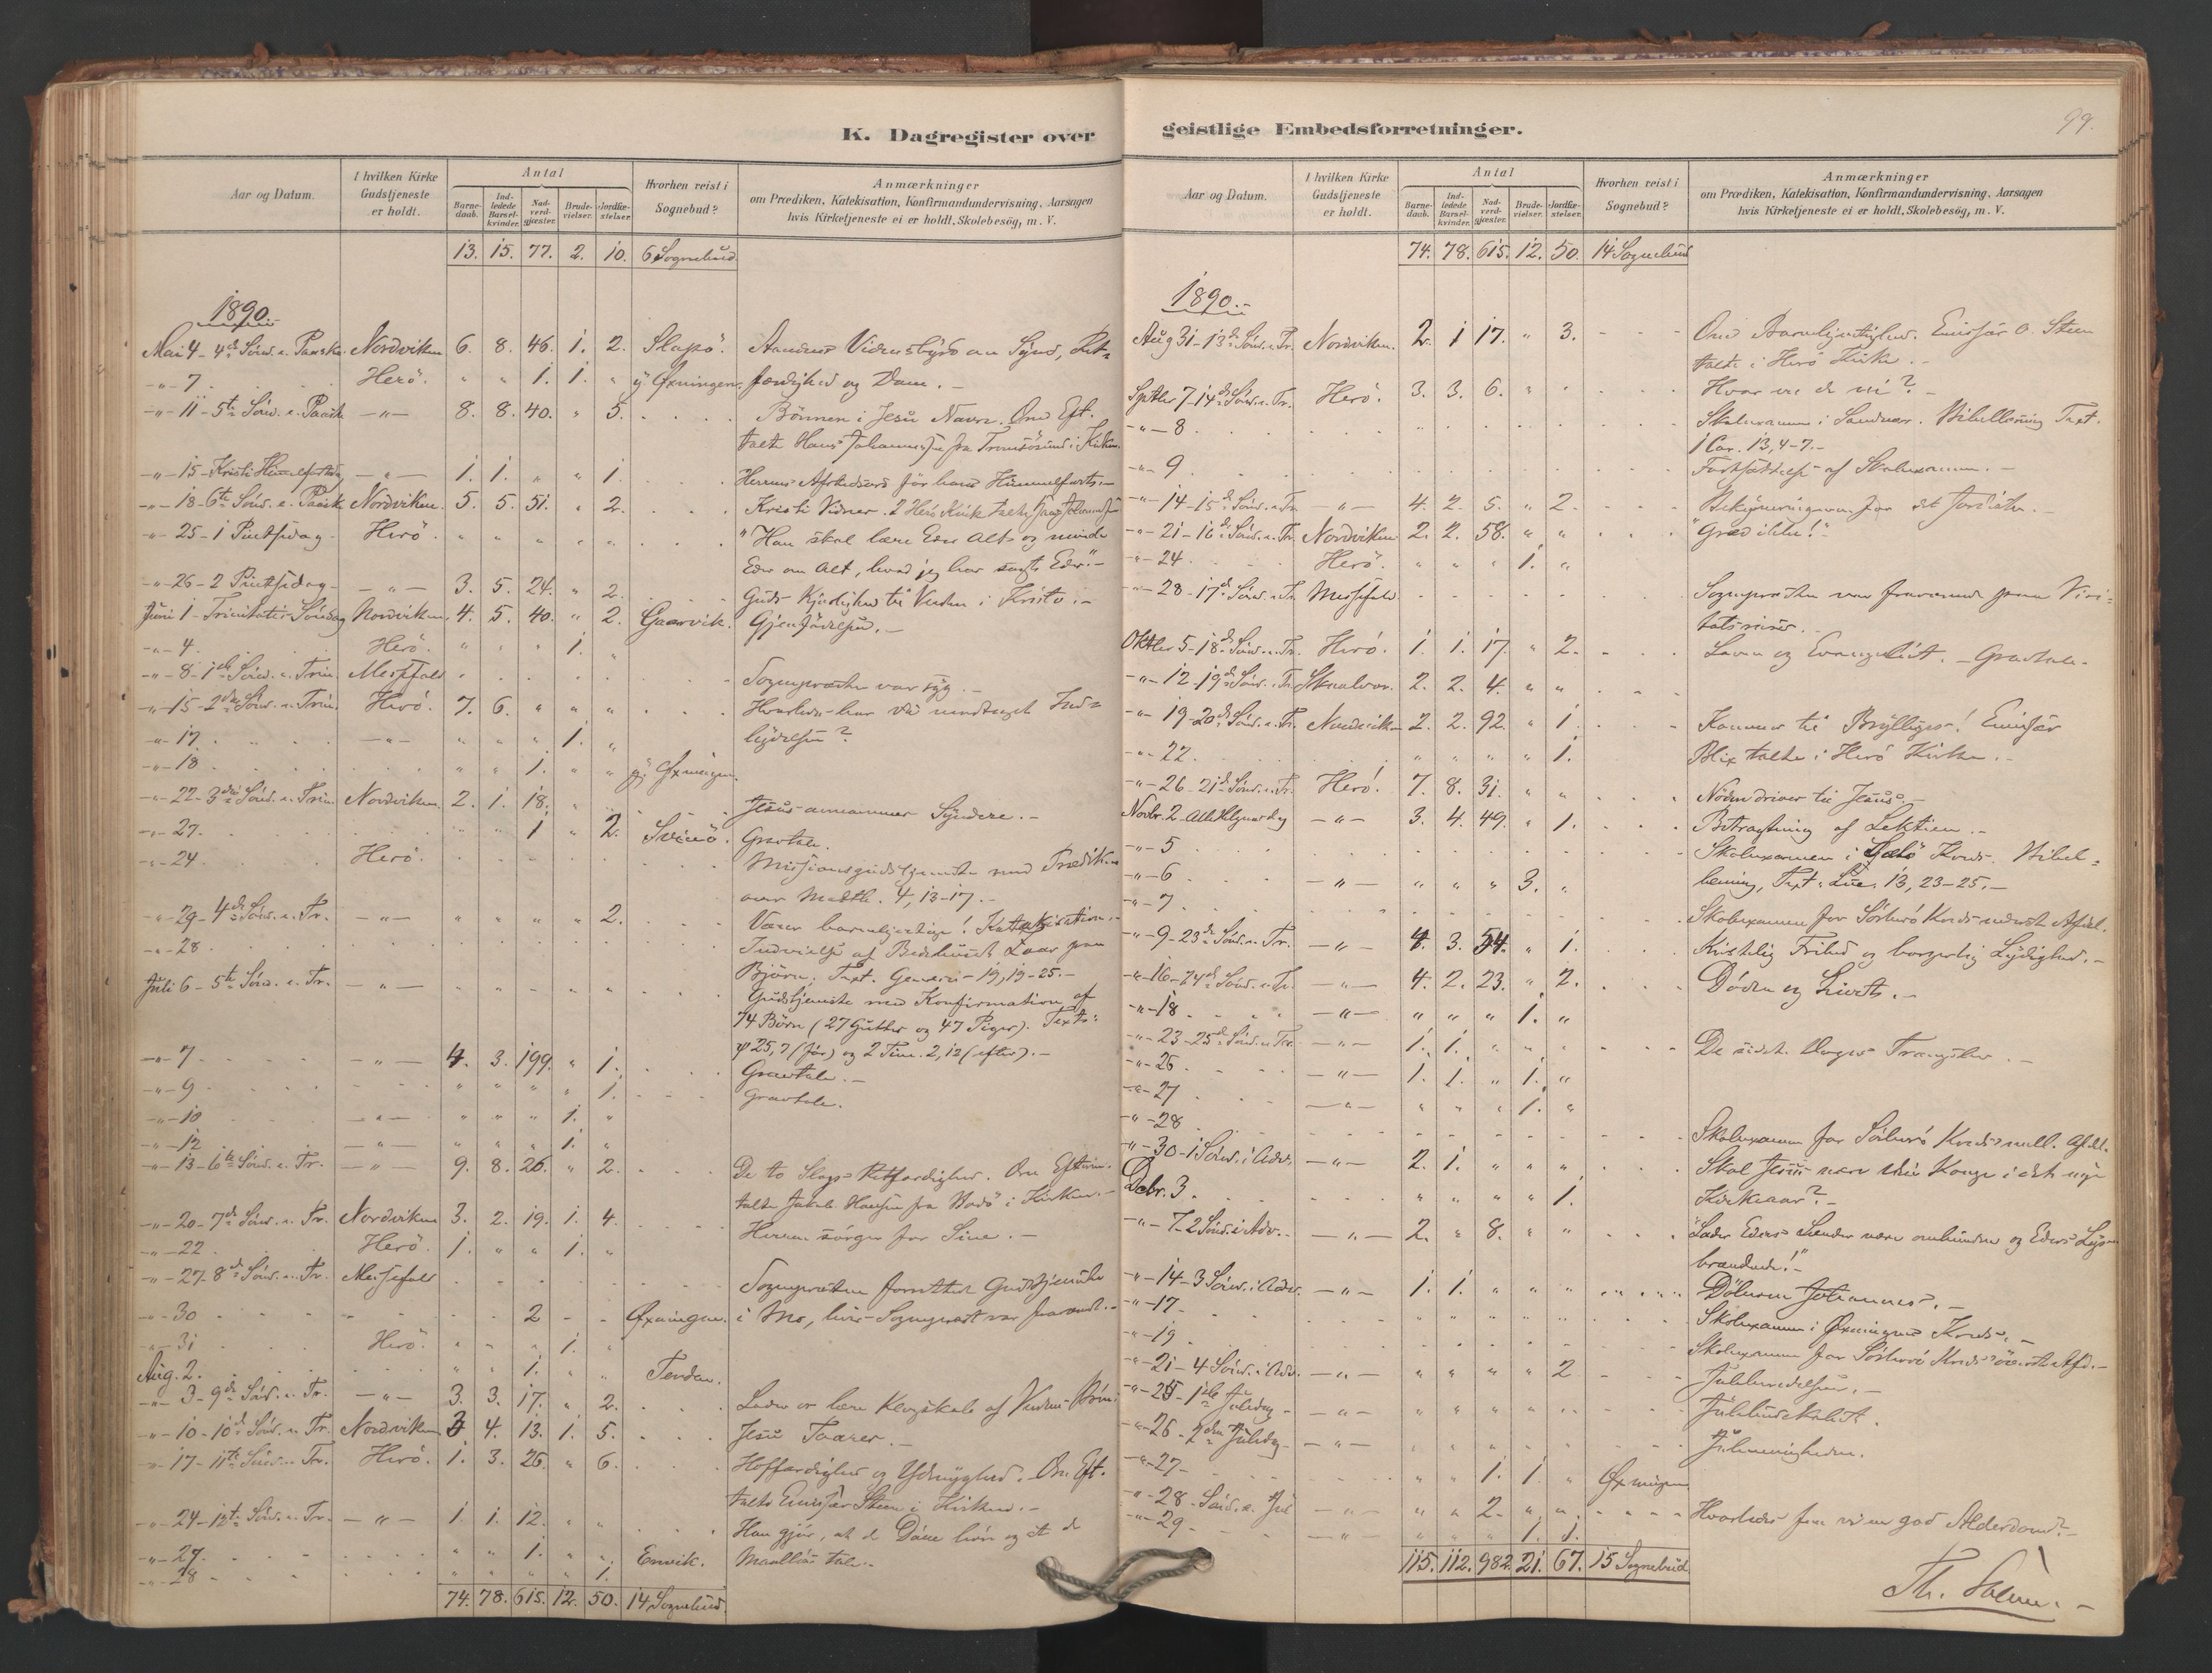 K. Dagregister over
Aar og Datum.
I hvilken Kirke Gudstjeneste er holdt.
Antal
Barnedaab.
Indledede Barselkvinder.
Nadverdgjæster.
Brudevielser.
Jordfæstelser.
Hvorhen reist i Sognebud?
Anmærkninger
om Prædiken, Katekisation, Konfirmandundervisning, Aarsagen
hvis Kirketjeneste ei er holdt, Skolebesög, m. V.
13. 15. 77. 2. 10. 6 Sognebud
1890.
Mai 4 - 4de Sönd. e. Paaske. Nordviken 6. 8. 46. 1. 2. Slapö. Aandens Vidnesbyrd om Synd, Ret-
-"- 7 Herö. " " 1. 1. " Öxningen. færdighed og Dom. -
-"- 11 - 5te Sönd. e. Paaske -"- 8. 8. 40. " 5. Bönnen i Jesu Navn. Om Eft.
talte Hans Johannessen fra i Kirken.
-"- 15 - Kristi Himmelfartsdag -"- 1. 1. " " 1. Herrens Afskedsord för hans Himmelfart. -
-"- 18 - 6te Sönd. e. Paaske Nordviken. 5. 5. 51. " 2. Kristi Vidner. I Herö Kirke talte
-"- 25 - 1 Pintsedag - Herö. " " " " " "Han skal lære Eder Alt og minde
Eder om Alt, hvad jeg har sagt Eder." -
-"- 26 - 2 Pintsedag - -"- 3. 5. 24. " 2. Guds Kjærlighed til Verden i Kristo. -
Juni 1 - Trinitatis Söndag Nordviken. 4. 5. 40. " 2. Gaarvik. Gjenfödelsen. -
-"- 4. Herö. " " " 1. "
-"- 8 - 1ste Sönd. e. Trin. Messefald Sognepresten var syg. -
-"- 15 - 2den Sönd. e. Trin. Herö. 7. 6. " " " Hvorledes har vi modtaget Ind-
-"- 17. -"- " " " 1. " bydelsen?
-"- 18 " " 1. " " Öxningen.
-"- 22 - 3die Sönd. e. Trin. Nordviken. 2. 1. 18. " Jesus annammer Syndere. -
-"- 27. 1 " 2. Svinö. Gravtale.
-"- 24 Herö. Missionsgudstjeneste med Prædiken
over Matth. 4, 13-17. -
-"- 29 - 4de Sönd. e. Tr. -"- " " " " 2. Værer barmhjertige! Katekisation. -
-"- 28 Indvielse af Bedehuset paa
Björn. Text. Genesis 19, 19-25. -
Juli 6 - 5te Sönd. e. Tr. -"- " " " " " Gudstjeneste med Konfirmation af
74 Börn (27 Gutter og 47 Piger). Text:
-"- 7 -"- 4. 3. 199. " 1. ψ 25, 7 (för) og 2 Tim. 2, 12 (efter). -
Gravtale. -
-"- 9 " " " " 1. Gravtale.
-"- 10 -"- " " " 1. "
-"- 12 -"- " " " 1. "
-"- 13 - 6te Sönd. e. Tr. -"- 9. 8. 26. " 2. De to Slags Retfærdighed. Om Efterm.
talte Jakob Hansen fra i Kirken. -
-"- 20 - 7de Sönd. e. Tr. Nordviken 3. 2. 19. 1. 4. Herren sörger for Sine. -
-"- 22 Herö. 1. " " 1. "
-"- 27 - 8de Sönd. e. Tr. Messefald Sognepresten forrettede Gudstjeneste
-"- 30 2 - - Öxningen. i Mo, hvis Sogneprest var fraværende. -
-"- 31 Herö. " " " 1. "
Aug. 2. " " 1. " " Tendan.
-"- 3 - 9de Sönd. e. Tr. -"- 3. 3. 17. " 2. Lader os lære Klogskab af Verdens Börn.
-"- 10 - 10de Sönd. e. Tr. Nordviken 3 4. 13. 1. 5. Jesu Taarer. -
-"- 17 - 11te Sönd. e. Tr. Herö. 1. 3. 26. " 6. Hoffærdighed og Ydmyghed. Om Eft.
talte Emissær Steen i Kirken. -
-"- 24 - 12te Sönd. e. Tr. -"- 1. 1. 12. " " Han gjör, at de Döve höre og at de
-"- 27. " " 1. " " Envik. Maallöse tale. -
-"- 28 " " " " 1.
74. 78. 615. 12. 50. 14 Sognebud.
99.
geistlige Embedsforretninger.
Aar og Datum.
I hvilken Kirke Gudstjeneste er holdt.
Antal
Barnedaab.
Indledede Barselkvinder.
Nadverdgjæster.
Brudevielser.
Jordfæstelser.
Hvorhen reist i Sognebud?
Anmærkninger
om Prædiken, Katekisation, Konfirmandundervisning, Aarsagen
hvis Kirketjeneste ei er holdt, Skolebesög, m. V.
74. 78. 615. 12. 50. 14 Sognebud
1890. -
Aug 31 - 13de Sönd. e. Tr. Nordviken. 2. 1 17. " 3. Om Barmhjertighed. Emissær O. Steen
talte i Herö Kirke. -
Septbr 7 - 14de Sönd. e. Tr. Herö. 3. 3. 6. " " Hvor ere de ni? -
-"- 8 Skolexamen i Sandnes. Bibellæsning Text.
1 Cor. 13, 4-7. -
-"- 9 Fortsættelse af Skolexamen. -
-"- 14 - 15de Sönd. e. Tr. -"- 4. 2. 5. " 2. Bekymringen for det Jordiske. -
-"- 21 - 16de Sönd. e. Tr. Nordviken 2. 2. 58. " " "Græd ikke!" -
-"- 24 Herö. " " " 1. "
-"- 28 - 17de Sönd. e. Tr. Messefald. Sognepresten var fraværende paa Visi-
tatsreiser. -
Oktbr 5 - 18de Sönd. e. Tr. Herö. 1. 1. 17. " 2. Loven og Evangeliet. - Gravtale. -
-"- 12 - 19de Sönd. e. Tr. 2. 2. 4. " "
-"- 19 - 20de Sönd. e. Tr. Nordviken 2. 2. 92. " 1. Kommer til Bryllups! Emissær
-"- 22. " " " " 1. Blix talte i Herö Kirke. -
-"- 26 - 21de Sönd. e. Tr. Herö. 7. 8. 31. " " Nöden driver til Jesus. -
Novbr. 2 - Allehelgensdag -"- 3. 4. 49. " 1. Betragtning af Lektien. -
-"- 5 Skolexamen i Kreds. Bibel-
-"- 6 -"- " " " 3. " læsning, Text: Luc. 13, 23-25. -
-"- 7 Skolexamen for Sörherö Kreds nederste Afdel.
-"- 9 - 23de Sönd. e. Tr. -"- 4. 3. 54. " 1. Kristelig Frihed og borgerlig Lydighed. -
-"- 16 - 24de Sönd. e. Tr. -"- 4. 2. 23. " 2. Döden og Livet. -
-"- 18 -"- " " " 1. "
-"- 23 - 25de Sönd. e. Tr. -"- 1. 1. " " " De sidste Dages Trængsler. -
-"- 26 -"- 1. 1. " 1. "
-"- 27 -"- " " " 1. "
-"- 28 Skolexamen for Sörherö Kreds mell. Afdel.
-"- 30 - 1 Sönd. i Adv. -"- 2. 1. " " " Skal Jesus være din Konge i det nye
Debr. 3. " " " " 1. Kirkeaar? -
-"- 7 - 2 Sönd. i Adv. - -"- 2. " 8. " " "Lader Eders Lænder være ombundne og Eders Lys
brændende!" -
-"- 14 - 3 Sönd. i Adv. -"- 1. 1. " " " Döberen Johannes. -
-"- 17 - Skolexamen i Öxningens Kreds. -
-"- 19 Skolexamen for Sörherö Kreds överste Afd. -
-"- 21 - 4 Sönd. i Adv. -"- " " " " 2 Juleberedelsen. -
-"- 25 - 1ste Juledag - -"- Julebudskabet.
-"- 26 - 2den Juledag - -"- Julemenigheden.
-"- 27 - " " 1. 1. " Öxningen
-"- 28 - Sönd. e. Jul -"- " " 2. " " Hvorledes faa vi en god Alderdom? -
-"- 29 - -"- " " " 1. 1.
115. 112. 982. 21. 67. 15 Sognebud